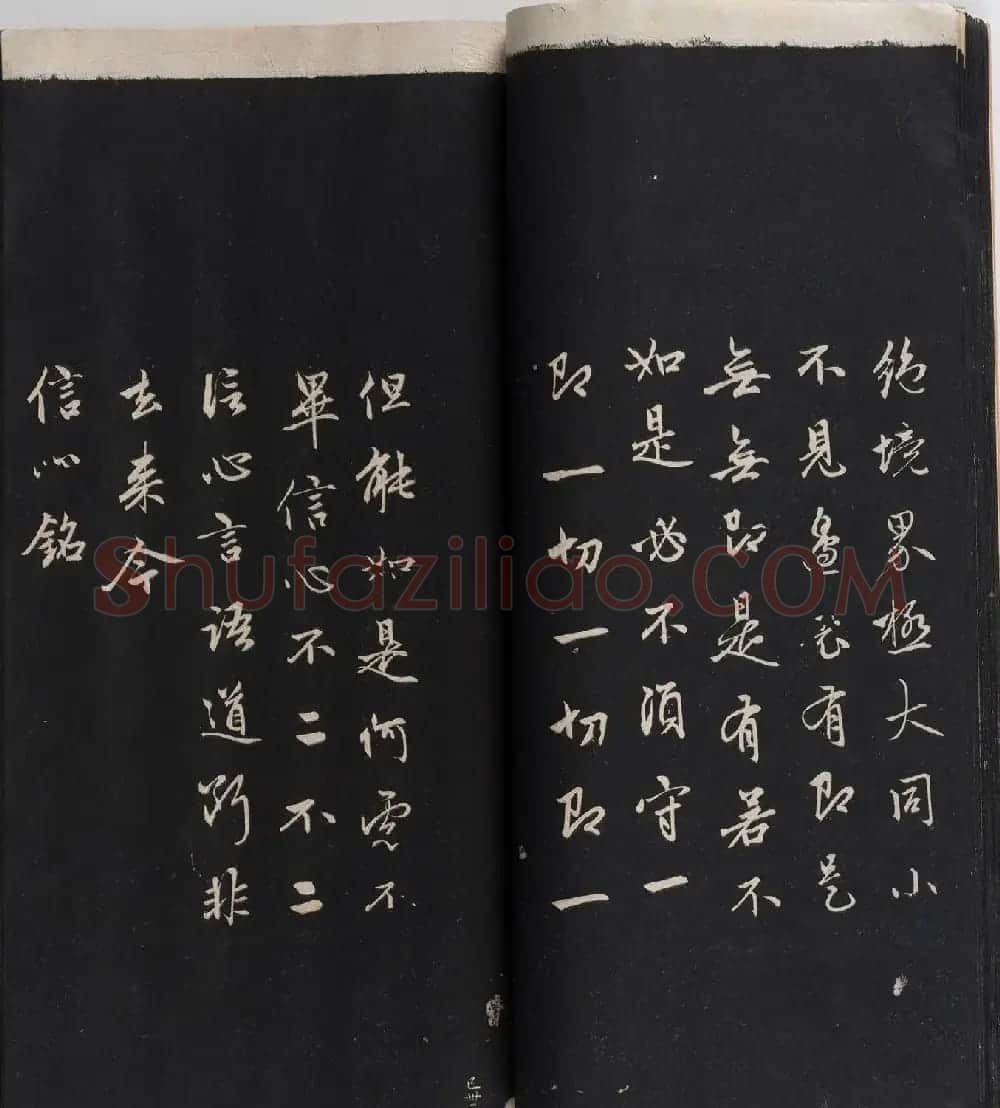 絶境界極大同小
不見邊表有即是
無無即是有若不
如是必不須守一
即一切一切即一
但能如是何慮不
畢信心不二不二
信心言語道斷非
去来今
信心銘
Shufaziliao.COM